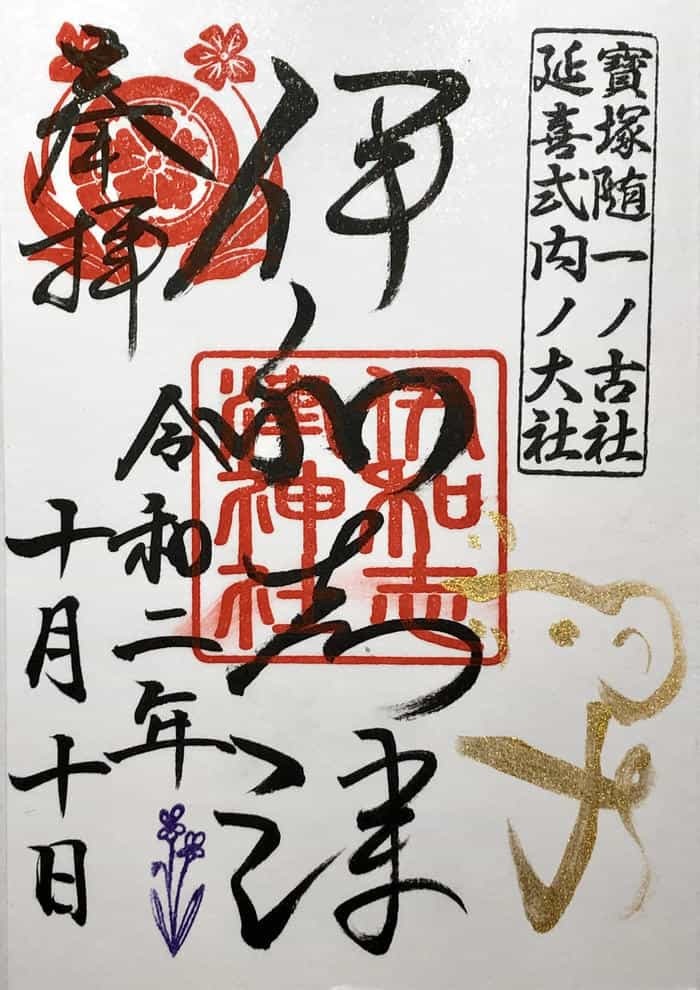 寶塚随一ノ古社
延喜式内ノ大社
伊和志津
伊和志
津神社
奉拝
令和二年
十月十日